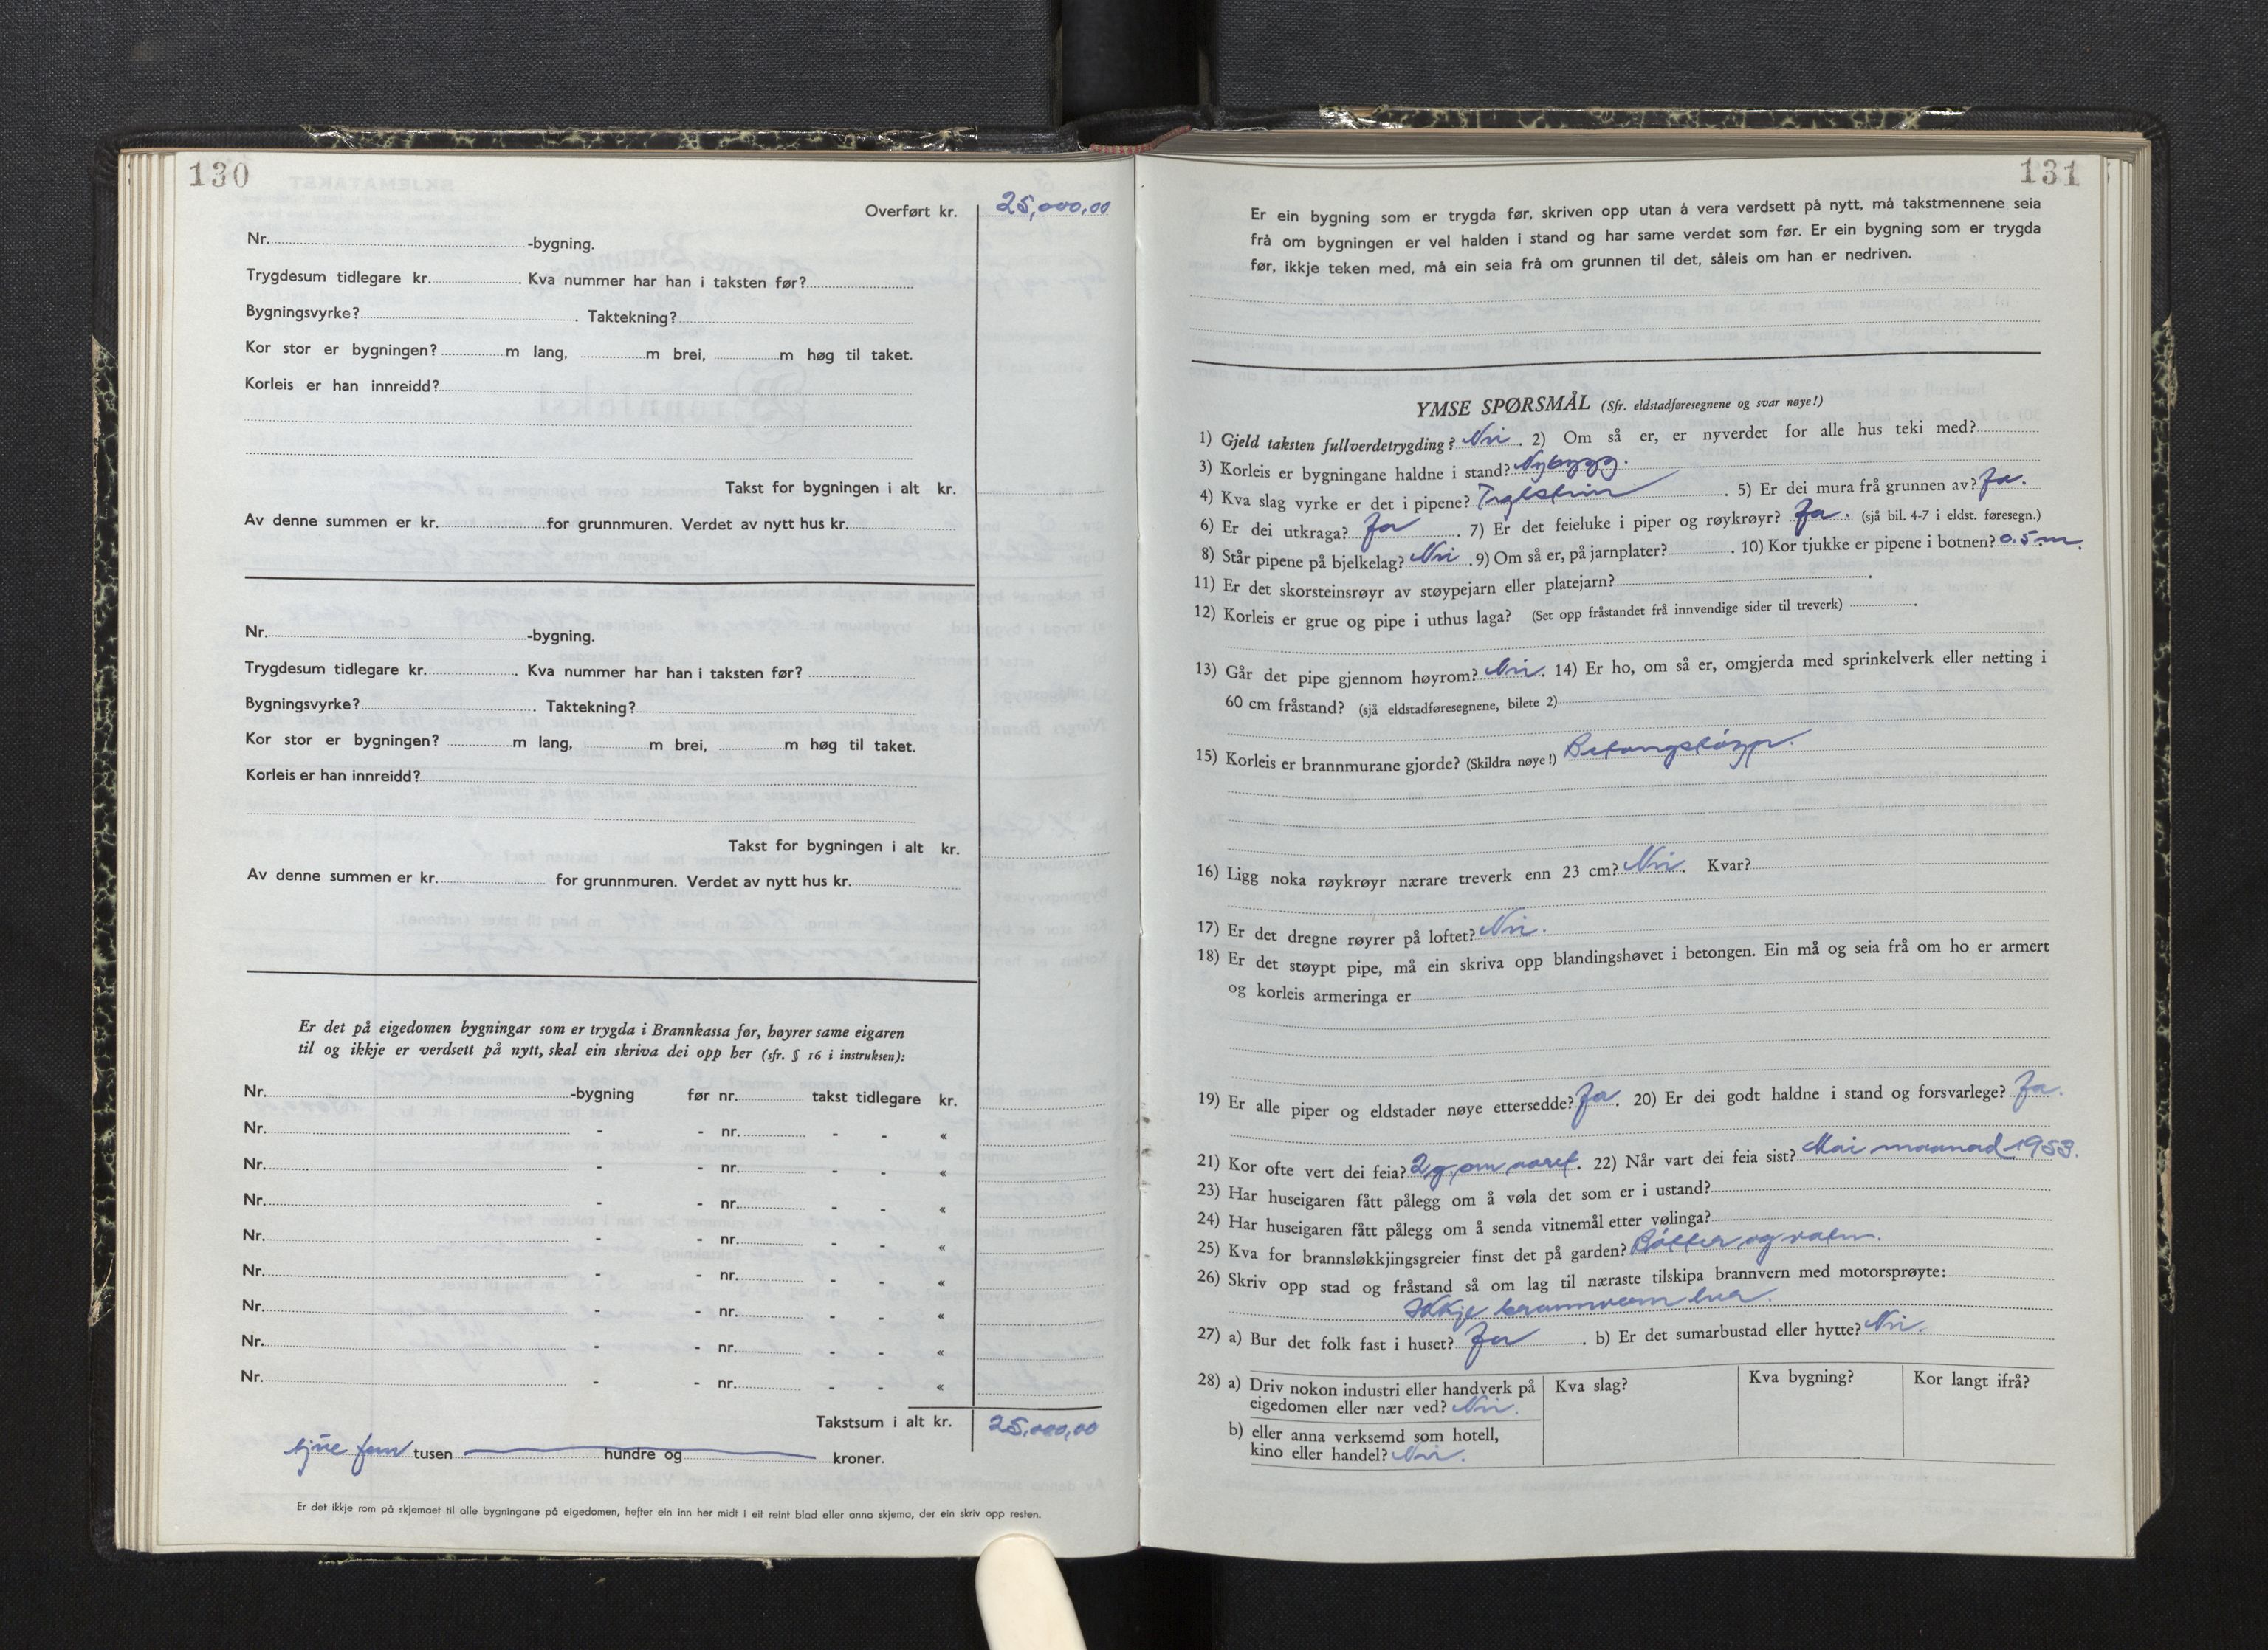 130
Overført kr. 25,000,00
Nr. -bygning.
Trygdesum tidlegare kr. . Kva nummer har han i taksten før?
Bygningsvyrke? . Taktekning?
Kor stor er bygningen? m lang, m brei, m høg til taket.
Korleis er han innreidd?
Takst for bygningen i alt kr.
Av denne summen er kr. for grunnmuren. Verdet av nytt hus kr.
Nr. -bygning.
Trygdesum tidlegare kr. . Kva nummer har han i taksten før?
Bygningsvyrke? . Taktekning?
Kor stor er bygningen? m lang, m brei, m høg til taket.
Korleis er han innreidd?
Takst for bygningen i alt kr.
Av denne summen er kr. for grunnmuren. Verdet av nytt hus kr.
Er det på eigedomen bygningar som er trygda i Brannkassa før, høyrer same eigaren
til og ikkje er verdsett på nytt, skal ein skriva dei opp her (sfr. § 16 i instruksen):
Nr. -bygning før nr. takst tidlegare kr.
Nr. - - nr. - - «
Nr. - - nr. - - «
Nr. - - nr. - - «
Nr. - - nr. - - «
Nr. - - nr. - - «
Nr. - - nr. - - «
Nr. - - nr. - - «
Nr. - - nr. - - «
Takstsum i alt kr. 25,000,00
tjue fem tusen hundre og kroner.
Er det ikkje rom på skjemaet til alle bygningane på eigedomen, hefter ein inn her midt i eit reint blad eller anna skjema, der ein skriv opp resten.
131
Er ein bygning som er trygda før, skriven opp utan å vera verdsett på nytt, må takstmennene seia
frå om bygningen er vel halden i stand og har same verdet som før. Er ein bygning som er trygda
før, ikkje teken med, må ein seia frå om grunnen til det, såleis om han er nedriven.
YMSE SPØRSMÅL (Sfr. eldstadføresegnene og svar nøye!)
1) Gjeld taksten fullverdetrygding? Nei . 2) Om så er, er nyverdet for alle hus teki med?
3) Korleis er bygningane haldne i stand? Nybygg.
4) Kva slag vyrke er det i pipene? Teglstein . 5) Er dei mura frå grunnen av? Ja.
6) Er dei utkraga? Ja . 7) Er det feieluke i piper og røykrøyr? Ja. (sjå bil. 4-7 i eldst. føresegn.)
8) Står pipene på bjelkelag? Nei . 9) Om så er, på jarnplater? . 10) Kor tjukke er pipene i botnen? 0.5 m.
11) Er det skorsteinsrøyr av støypejarn eller platejarn? .
12) Korleis er grue og pipe i uthus laga? (Set opp fråstandet frå innvendige sider til treverk) .
13) Går det pipe gjennom høyrom? Nei. 14) Er ho, om så er, omgjerda med sprinkelverk eller netting i
60 cm fråstand? (sjå eldstadføresegnene, bilete 2)
15) Korleis er brannmurane gjorde? (Skildra nøye!) Betongstøypt.
16) Ligg noka røykrøyr nærare treverk enn 23 cm? Nei. Kvar?
17) Er det dregne røyrer på loftet? Nei.
18) Er det støypt pipe, må ein skriva opp blandingshøvet i betongen. Ein må og seia frå om ho er armert
og korleis armeringa er
19) Er alle piper og eldstader nøye ettersedde? Ja. 20) Er dei godt haldne i stand og forsvarlege? Ja.
21) Kor ofte vert dei feia? 2 g, om aaret. 22) Når vart dei feia sist? Mai maanad 1953.
23) Har huseigaren fått pålegg om å vøla det som er i ustand?
24) Har huseigaren fått pålegg om å senda vitnemål etter vølinga?
25) Kva for brannsløkkjingsgreier finst det på garden? Bøtter og vatn.
26) Skriv opp stad og fråstand så om lag til næraste tilskipa brannvern med motorsprøyte:
Ikkje brannvern her.
27) a) Bur det folk fast i huset? Ja . b) Er det sumarbustad eller hytte? Nei.
28) a) Driv nokon industri eller handverk på
eigedomen eller nær ved? Nei.
b) eller anna verksemd som hotell,
kino eller handel? Nei.
Kva slag?
Kva bygning?
Kor langt ifrå?